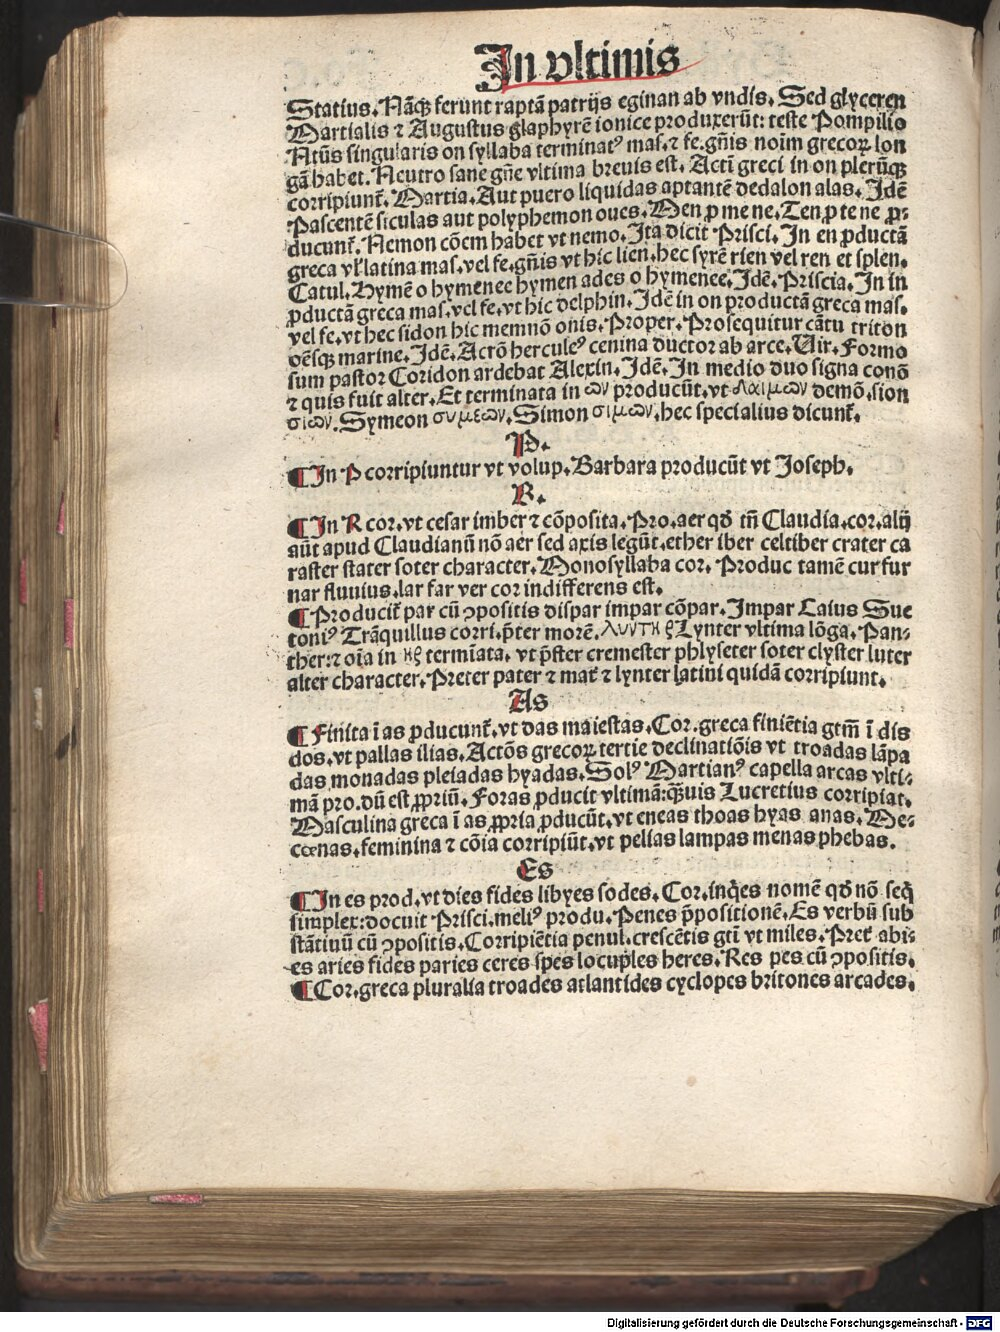 In vltimis
Statius. Nãqꝫ ferunt raptã patrijs eginan ab vndis. Sed glyceren
Martialis ⁊ Augustus glaphyrẽ ionice produxerũt: teste Pompilio
Ntũs singularis on syllaba terminatꝰ mas. ⁊ fe. gñis noim grecoꝝ lon
gã habet. Neutro sane gñe vltima breuis est. Acti greci in on plerũqꝫ
corripiunt̃. Martia. Aut puero liquidas aptantẽ dedalon alas. Idẽ
Pascentẽ siculas aut polyphemon oues. Men ꝓ me ne. Ten ꝓ te ne ꝓ⸗
ducunt̃. Nemon cõem habet vt nemo. Ita dicit Prisci. In en ꝓductã
greca vl̃ latina mas. vel fe. gñis vt hic lien. hec syrẽ rien vel ren et splen.
Catul. Hymẽ o hymenee hymen ades o hymenee. Idẽ. Priscia. In in
ꝓductã greca mas. vel fe. vt hic delphin. Idẽ in on productã greca mas.
vel fe. vt hec sidon hic memnõ onis. Proper. Prosequitur cãtu triton
oẽsqꝫ marine. Idẽ. Acrõ herculeꝰ cenina ductor ab arce. Uir. Formo
sum pastor Coridon ardebat Alexin. Idẽ. In medio duo signa conõ
⁊ quis fuit alter. Et terminata in ων producũt. vt λαιμων demõ. sion
σιων. Symeon συμεων. Simon σιμων. hec specialius dicunt̃.
P.
¶ In P corripiuntur vt volup. Barbara producũt vt Joseph.
R.
¶ In R cor. vt cesar imber ⁊ cõposita. Pro. aer qð tñ Claudia. cor. alij
aũt apud Claudianũ nõ aer sed axis legũt. ether iber celtiber crater ca
raster stater soter character. Monosyllaba cor. Produc tamẽ cur fur
nar fluuius. lar far ver cor indifferens est.
¶ Producit̃ par cũ ꝯpositis dispar impar cõpar. Impar Caius Sue
toniꝰ Trãquillus corri. p̃ter morẽ. λυντηρ Lynter vltima lõga. Pan⸗
ther: ⁊ oĩa in ηρ terminata. vt p̃ster cremester phlyseter soter clyster luter
alter character. Preter pater ⁊ mat̃ ⁊ lynter latini quidã corripiunt.
As
¶ Finita ĩ as ꝓducunt̃. vt das maiestas. Cor. greca finiẽtia gtm̃ ĩ dis
dos. vt pallas ilias. Actõs grecoꝝ tertie declinatiõis vt troadas lãpa
das monadas pleiadas hyadas. Solꝰ Martianꝰ capella arcas vlti⸗
mã pro. dũ est ꝓpriũ. Foras ꝓducit vltimã: q̃uis Lucretius corripiat.
Masculina greca ĩ as ꝓpria ꝓducũt. vt eneas thoas hyas anas. Me⸗
cœnas. feminina ⁊ cõia corripiũt. vt pelias lampas menas phebas.
Es
¶ In es prod. vt dies fides libyes sodes. Cor. inq̃es nomẽ qð nõ seq̃
simplex: docuit Prisci. meliꝰ produ. Penes p̃positionẽ. Es verbũ sub
stãtiuũ cũ ꝯpositis. Corripiẽtia penul. crescẽtis gtĩ vt miles. Pret̃ abi⸗
es aries fides paries ceres spes locuples heres. Res pes cũ ꝯpositis.
¶ Cor. greca pluralia troades atlantides cyclopes britones arcades.
Digitalisierung gefördert durch die Deutsche Forschungsgemeinschaft - DFG